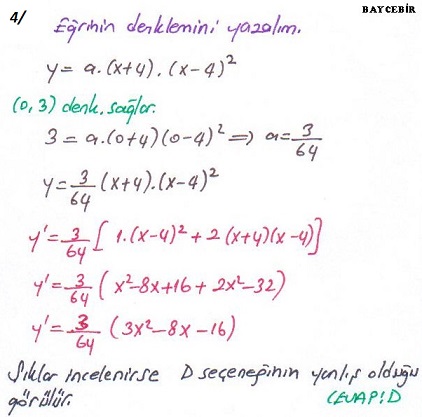 BAYCEBİR
4/ Eğrinin denklemini yazalım.
y = a.(x+4).(x-4)²
(0,3) denk. sağlar.
3 = a.(0+4)(0-4)² ⟹ a = 3/64
y = 3/64 (x+4).(x-4)²
y' = 3/64 [1.(x-4)² + 2(x+4)(x-4)]
y' = 3/64 (x²-8x+16+2x²-32)
y' = 3/64 (3x²-8x-16)
Şıklar incelenirse D seçeneğinin yanlış olduğu
görülür. CEVAP:D